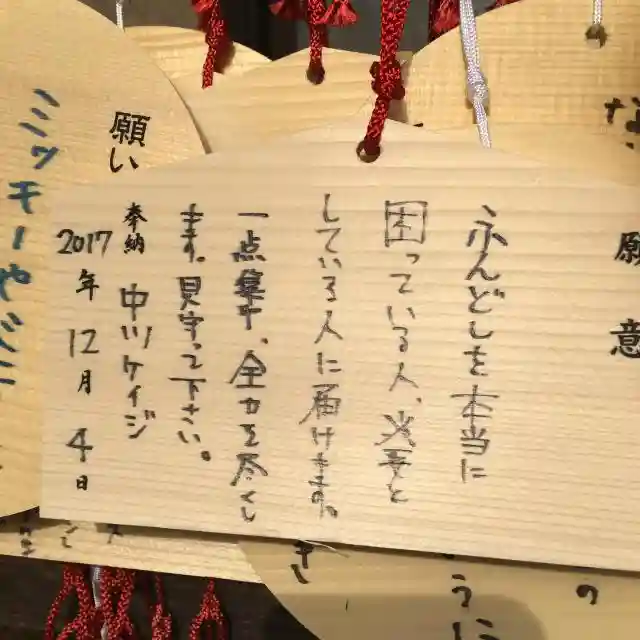 願意
ふんどしを本当に
困っている人、必要と
している人に届けます。
一点集中、全力を尽くし
ます。見守って下さい。
奉納 中川ケイジ
2017年12月4日
願い
ミッキーやミニー